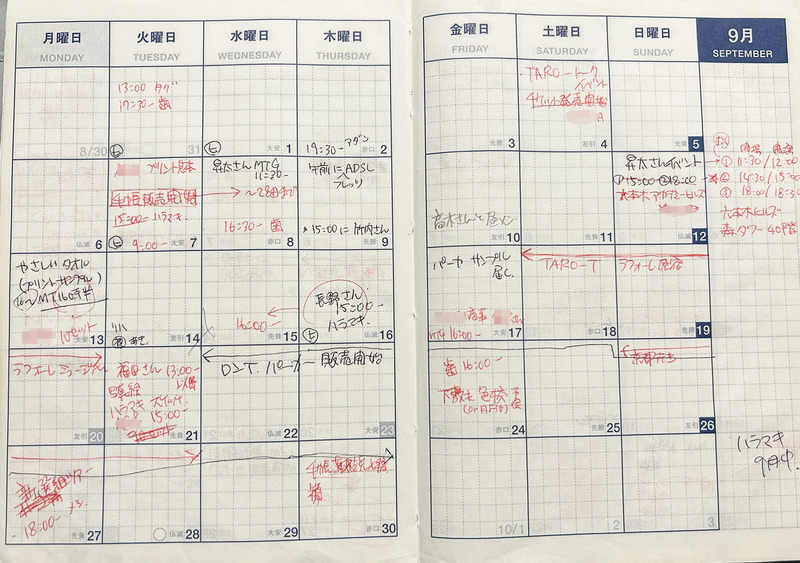 月曜日 火曜日 水曜日 木曜日
MONDAY TUESDAY WEDNESDAY THURSDAY
金曜日 土曜日 日曜日 9月
FRIDAY SATURDAY SUNDAY SEPTEMBER
13:00
17:30- 歯
19:30-
8/30 31 大安 1 赤口 2
TARO-トーク
イベント
チケット販売開始
先勝 3 友引 4 先負 5
プリント見本
手帳販売開始
15:00- ハラマキ
9:00-
昇太さんMTG
11:30-
〜28日まで
16:30- 歯
午前にADSL
フレッツ
15:00に竹内さん
仏滅 6 大安 7 赤口 8 先勝 9
高木さんと昼メシ
昇太さんイベント
①15:00- ②18:00-
六本木アカデミーヒルズ
友引 10 先負 11 仏滅 12
開場 開演
① 11:30/12:00
② 14:30/15:00
③ 18:00/18:30
六本木ヒルズ
森タワー40階
やさしいタオル
(プリントサンプル)
MT16時半
16:00-
長野さん
15:00-
ハラマキ
大安 13 友引 14 先負 15 仏滅 16
パーカ サンプル
届く
TARO-T
ラフォーレ原宿
MTG 16:00-
大安 17 赤口 18 先勝 19
ラフォーレミュージアム
福田さん 13:00-
以降
ハラマキ
15:00-
ロンT. パーカー 販売開始
友引 20 先負 21 仏滅 22 大安 23
歯 16:00-
色校
赤口 24 先勝 25 友引 26
ハラマキ
9月中
新選組ツアー
18:00-
手帳
先負 27 仏滅 28 大安 29 赤口 30
10/1 2 3